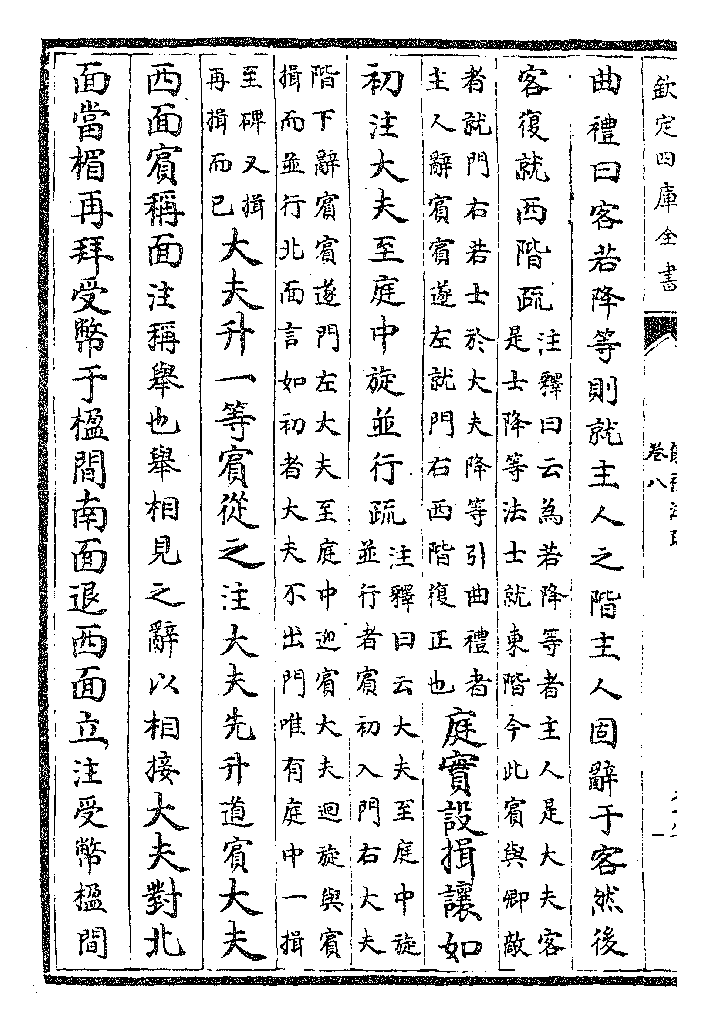 欽定四庫全書
卷八
曲禮曰客若降等則就主人之階主人固辭于客然後
客復就西階疏
注釋曰云為若降等者主人是大夫客
是士降等法士就東階今此賓與卿敵
者就門右若士於大夫降等引曲禮者
主人辭賓賓遂左就門右西階復正也
庭實設揖讓如
初注大夫至庭中旋並行疏
注釋曰云大夫至庭中旋
並行者賓初入門右大夫
階下辭賓賓遂門左大夫至庭中迎賓大夫迴旋與賓
揖而並行北面言如初者大夫不出門唯有庭中一揖
至碑又揖
再揖而已
大夫升一等賓從之注大夫先升道賓大夫
西面賓稱面注稱舉也舉相見之辭以相接大夫對北
面當楣再拜受幣于楹間南面退西面立注受幣楹間